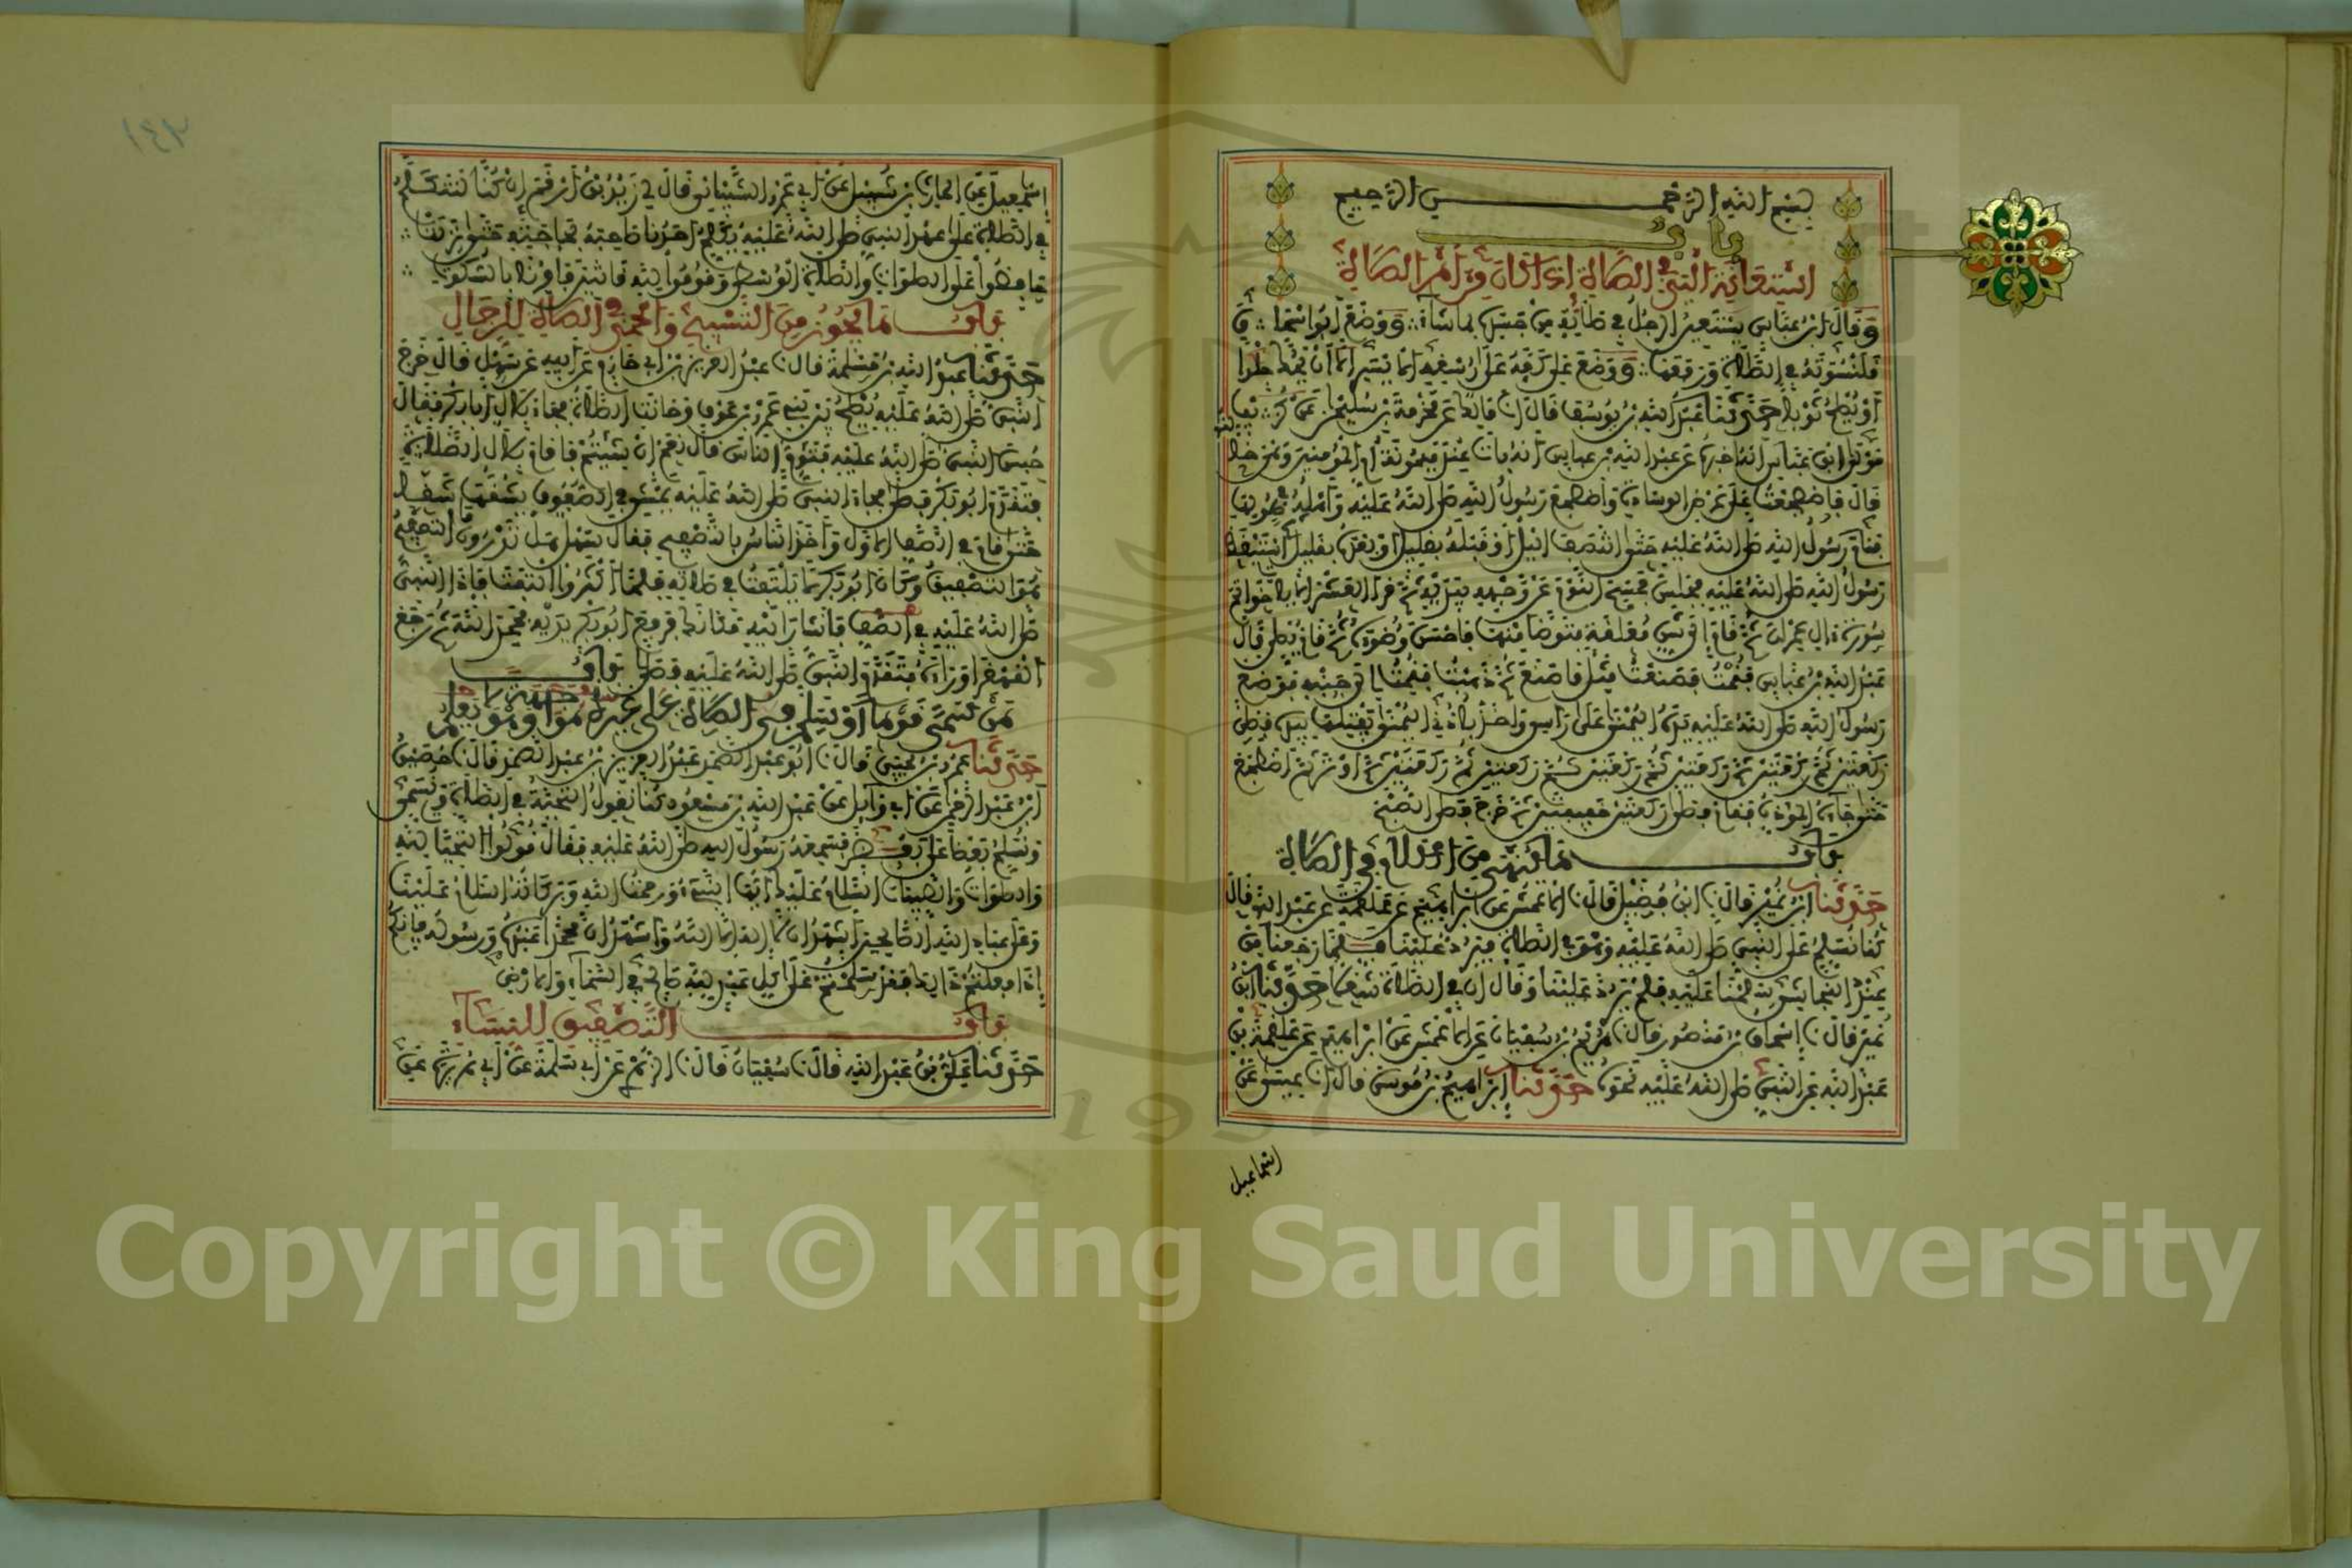 بسم الله الرحمن الرحيم
باب
استعانة اليد في الصلاة اذا كان من امر الصلاة
وقال ابن عباس يستعين الرجل في صلاته من جسده بما شاء ووضع ابو اسحاق
قلنسوته في الصلاة ورفعها ووضع علي كفه على رسغه الا ان يحك جلدا
او يصلح ثوبا حدثنا عبد الله بن يوسف قال انا مالك عن مخرمة بن سليمن عن كريب
مولى ابن عباس انه اخبره عن عبد الله بن عباس انه بات عند ميمونة ام المؤمنين وهي خالته
قال فاضطجعت على عرض الوسادة واضطجع رسول الله صلى الله عليه واهله في طولها
فنام رسول الله صلى الله عليه حتى انتصف اليل او قبله بقليل او بعده بقليل استيقظ
رسول الله صلى الله عليه فجلس فمسح النوم عن وجهه بيديه ثم قرا العشر الايات خواتم
سورة ال عمران ثم قام الى شن معلقة فتوضا منها فاحسن وضوءه ثم قام يصلي قال
عبد الله بن عباس فقمت فصنعت مثل ما صنع ثم ذهبت فقمت الى جنبه فوضع
رسول الله صلى الله عليه يده اليمنى على راسي واخذ باذني اليمنى يفتلها بيده فصلى
ركعتين ثم ركعتين ثم ركعتين ثم ركعتين ثم ركعتين ثم ركعتين ثم اوتر ثم اضطجع
حتى جاءه المؤذن فقام فصلى ركعتين خفيفتين ثم خرج فصلى الصبح
باب ما ينهى من الكلام في الصلاة
حدثنا ابن نمير قال نا ابن فضيل قال نا الاعمش عن ابراهيم عن علقمة عن عبد الله قال
كنا نسلم على النبي صلى الله عليه وهو في الصلاة فيرد علينا فلما رجعنا من
عند النجاشي سلمنا عليه فلم يرد علينا وقال ان في الصلاة شغلا حدثنا ابن
نمير قال نا اسحاق بن منصور قال نا هريم بن سفيان عن الاعمش عن ابراهيم عن علقمة عن
عبد الله عن النبي صلى الله عليه نحوه حدثنا ابراهيم بن موسى قال انا عيسى عن
اسماعيل
١٤٢
اسمعيل عن الحارث بن شبيل عن ابي عمرو الشيباني قال لي زيد بن ارقم ان كنا لنتكلم
في الصلاة على عهد النبي صلى الله عليه يكلم احدنا صاحبه بحاجته حتى نزلت
حافظوا على الصلوات والصلاة الوسطى وقوموا لله قانتين فامرنا بالسكوت
باب ما يجوز من التسبيح والحمد في الصلاة للرجال
حدثنا عبد الله بن مسلمة قال نا عبد العزيز بن ابي حازم عن ابيه عن سهل قال خرج
النبي صلى الله عليه يصلح بين بني عمرو بن عوف وحانت الصلاة فجاء بلال ابا بكر فقال
حبس النبي صلى الله عليه فتؤم الناس قال نعم ان شئتم فاقام بلال الصلاة
فتقدم ابو بكر فصلى فجاء النبي صلى الله عليه يمشي في الصفوف يشقها شقا
حتى قام في الصف الاول واخذ الناس بالتصفيح فقال سهل هل تدرون ما التصفيح
هو التصفيق وكان ابو بكر لا يلتفت في صلاته فلما اكثروا التفت فاذا النبي
صلى الله عليه في الصف فاشار اليه مكانك فرفع ابو بكر يديه فحمد الله ثم رجع
القهقرا وراءه فتقدم النبي صلى الله عليه فصلى باب
من سمى قوما او سلم في الصلاة على غيره مواجهة وهو لا يعلم
حدثنا عمرو بن عيسى قال نا ابو عبد الصمد عبد العزيز بن عبد الصمد قال نا حصين
ابن عبد الرحمن عن ابي وايل عن عبد الله بن مسعود كنا نقول التحية في الصلاة ونسمي
ونسلم بعضنا على بعض فسمعه رسول الله صلى الله عليه فقال قولوا التحيات لله
والصلوات والطيبات السلام عليك ايها النبي ورحمت الله وبركاته السلام علينا
وعلى عباد الله الصالحين اشهد ان لا اله الا الله واشهد ان محمدا عبده ورسوله فانكم
اذا فعلتم ذلك فقد سلمتم على كل عبد لله صالح في السماء والارض
باب التصفيق للنساء
حدثنا علي بن عبد الله قال نا سفيان قال نا الزهري عن ابي سلمة عن ابي هريرة عن
Copyright © King Saud University
1957